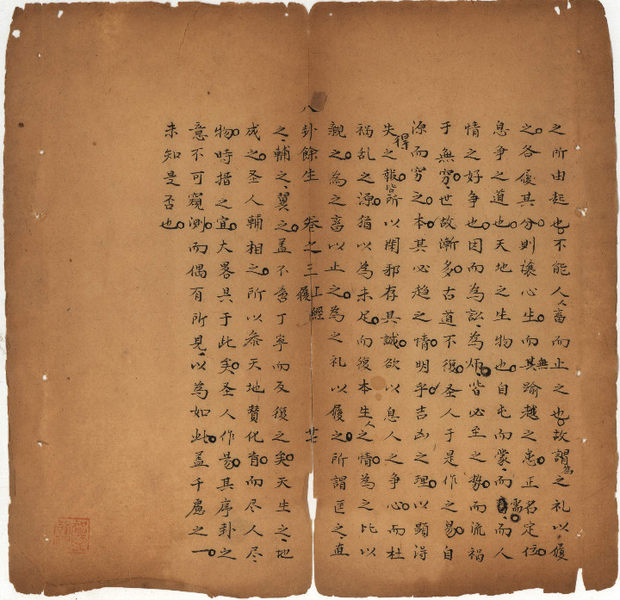 之所由起也不能人人畜而止之也故為之礼以履
之各履其分則讓心生而無踰越之患正名定位
息争之道也天地之生物也自屯而蒙而需而人
情之好争也因而為訟為師皆必至之势而流禍
于無窮世故漸多古道不復圣人于是作之易自
源而窮之本其必趋之情明乎吉凶之理以顕得
失之報所以閑邪存其誠欲以息人之争心而杜
禍乱之源皆以為未足而復本生人之情為之比以
親之為之畜以止之為之礼以履之所謂匡之直
八卦餘生 卷之三 上經 履 廿
之輔之翼之盖不啻丁寧而反復之矣天生之地
成之圣人輔相之所以叅天地賛化育而尽人尽
物時措之宜大畧具于此矣圣人作易其序卦之
意不可窺測而偶有所見以為如此盖千慮之一
未知是否也